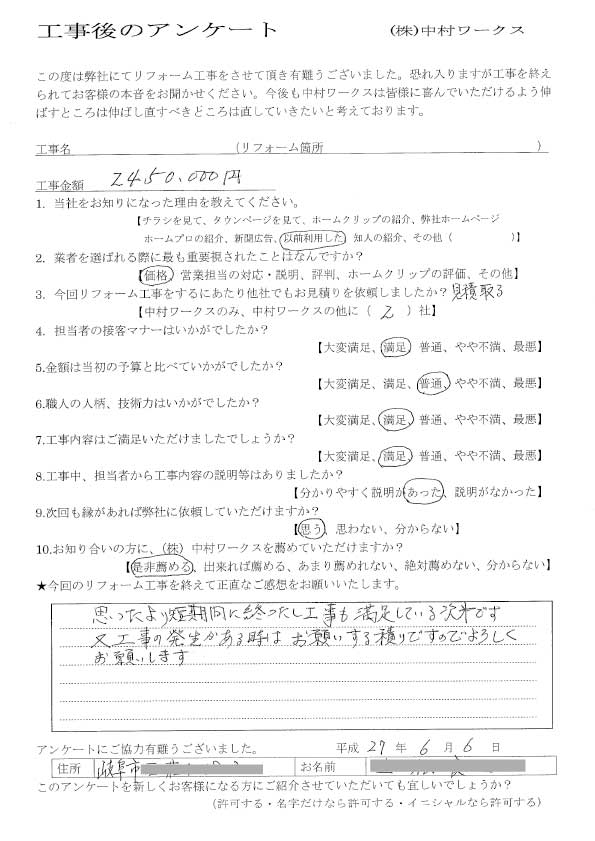 工事後のアンケート (株)中村ワークス
この度は弊社にてリフォーム工事をさせて頂き有難うございました。恐れ入りますが工事を終え
られてお客様の本音をお聞かせください。今後も中村ワークスは皆様に喜んでいただけるよう伸
ばすところは伸ばし直すべきどころは直していきたいと考えております。
工事名 (リフォーム箇所 )
工事金額 2450.000円
1. 当社をお知りになった理由を教えてください。
【チラシを見て、タウンページを見て、ホームクリップの紹介、弊社ホームページ
ホームプロの紹介、新聞広告、以前利用した、知人の紹介、その他( )】
2. 業者を選ばれる際に最も重要視されたことはなんですか?
【価格、営業担当の対応・説明、評判、ホームクリップの評価、その他】
3. 今回リフォーム工事をするにあたり他社でもお見積りを依頼しましたか? 見積取る
【中村ワークスのみ、中村ワークスの他に( 2 )社】
4. 担当者の接客マナーはいかがでしたか?
【大変満足、満足、普通、やや不満、最悪】
5.金額は当初の予算と比べていかがでしたか?
【大変満足、満足、普通、やや不満、最悪】
6.職人の人柄、技術力はいかがでしたか?
【大変満足、満足、普通、やや不満、最悪】
7.工事内容はご満足いただけましたでしょうか?
【大変満足、満足、普通、やや不満、最悪】
8.工事中、担当者から工事内容の説明等はありましたか?
【分かりやすく説明があった、説明がなかった】
9.次回も縁があれば弊社に依頼していただけますか?
【思う、思わない、分からない】
10.お知り合いの方に、(株)中村ワークスを薦めていただけますか?
【是非薦める、出来れば薦める、あまり薦めれない、絶対薦めない、分からない】
★今回のリフォーム工事を終えて正直なご感想をお願いいたします。
思ったより短期間に終ったし工事も満足している次才です
又工事の発生がある時は お願いする積りですのでよろしく
お願いします
アンケートにご協力有難うございました。 平成 27 年 6 月 6 日
住所 岐阜市 お名前
このアンケートを新しくお客様になる方にご紹介させていただいても宜しいでしょうか?
(許可する・名字だけなら許可する・イニシャルなら許可する)